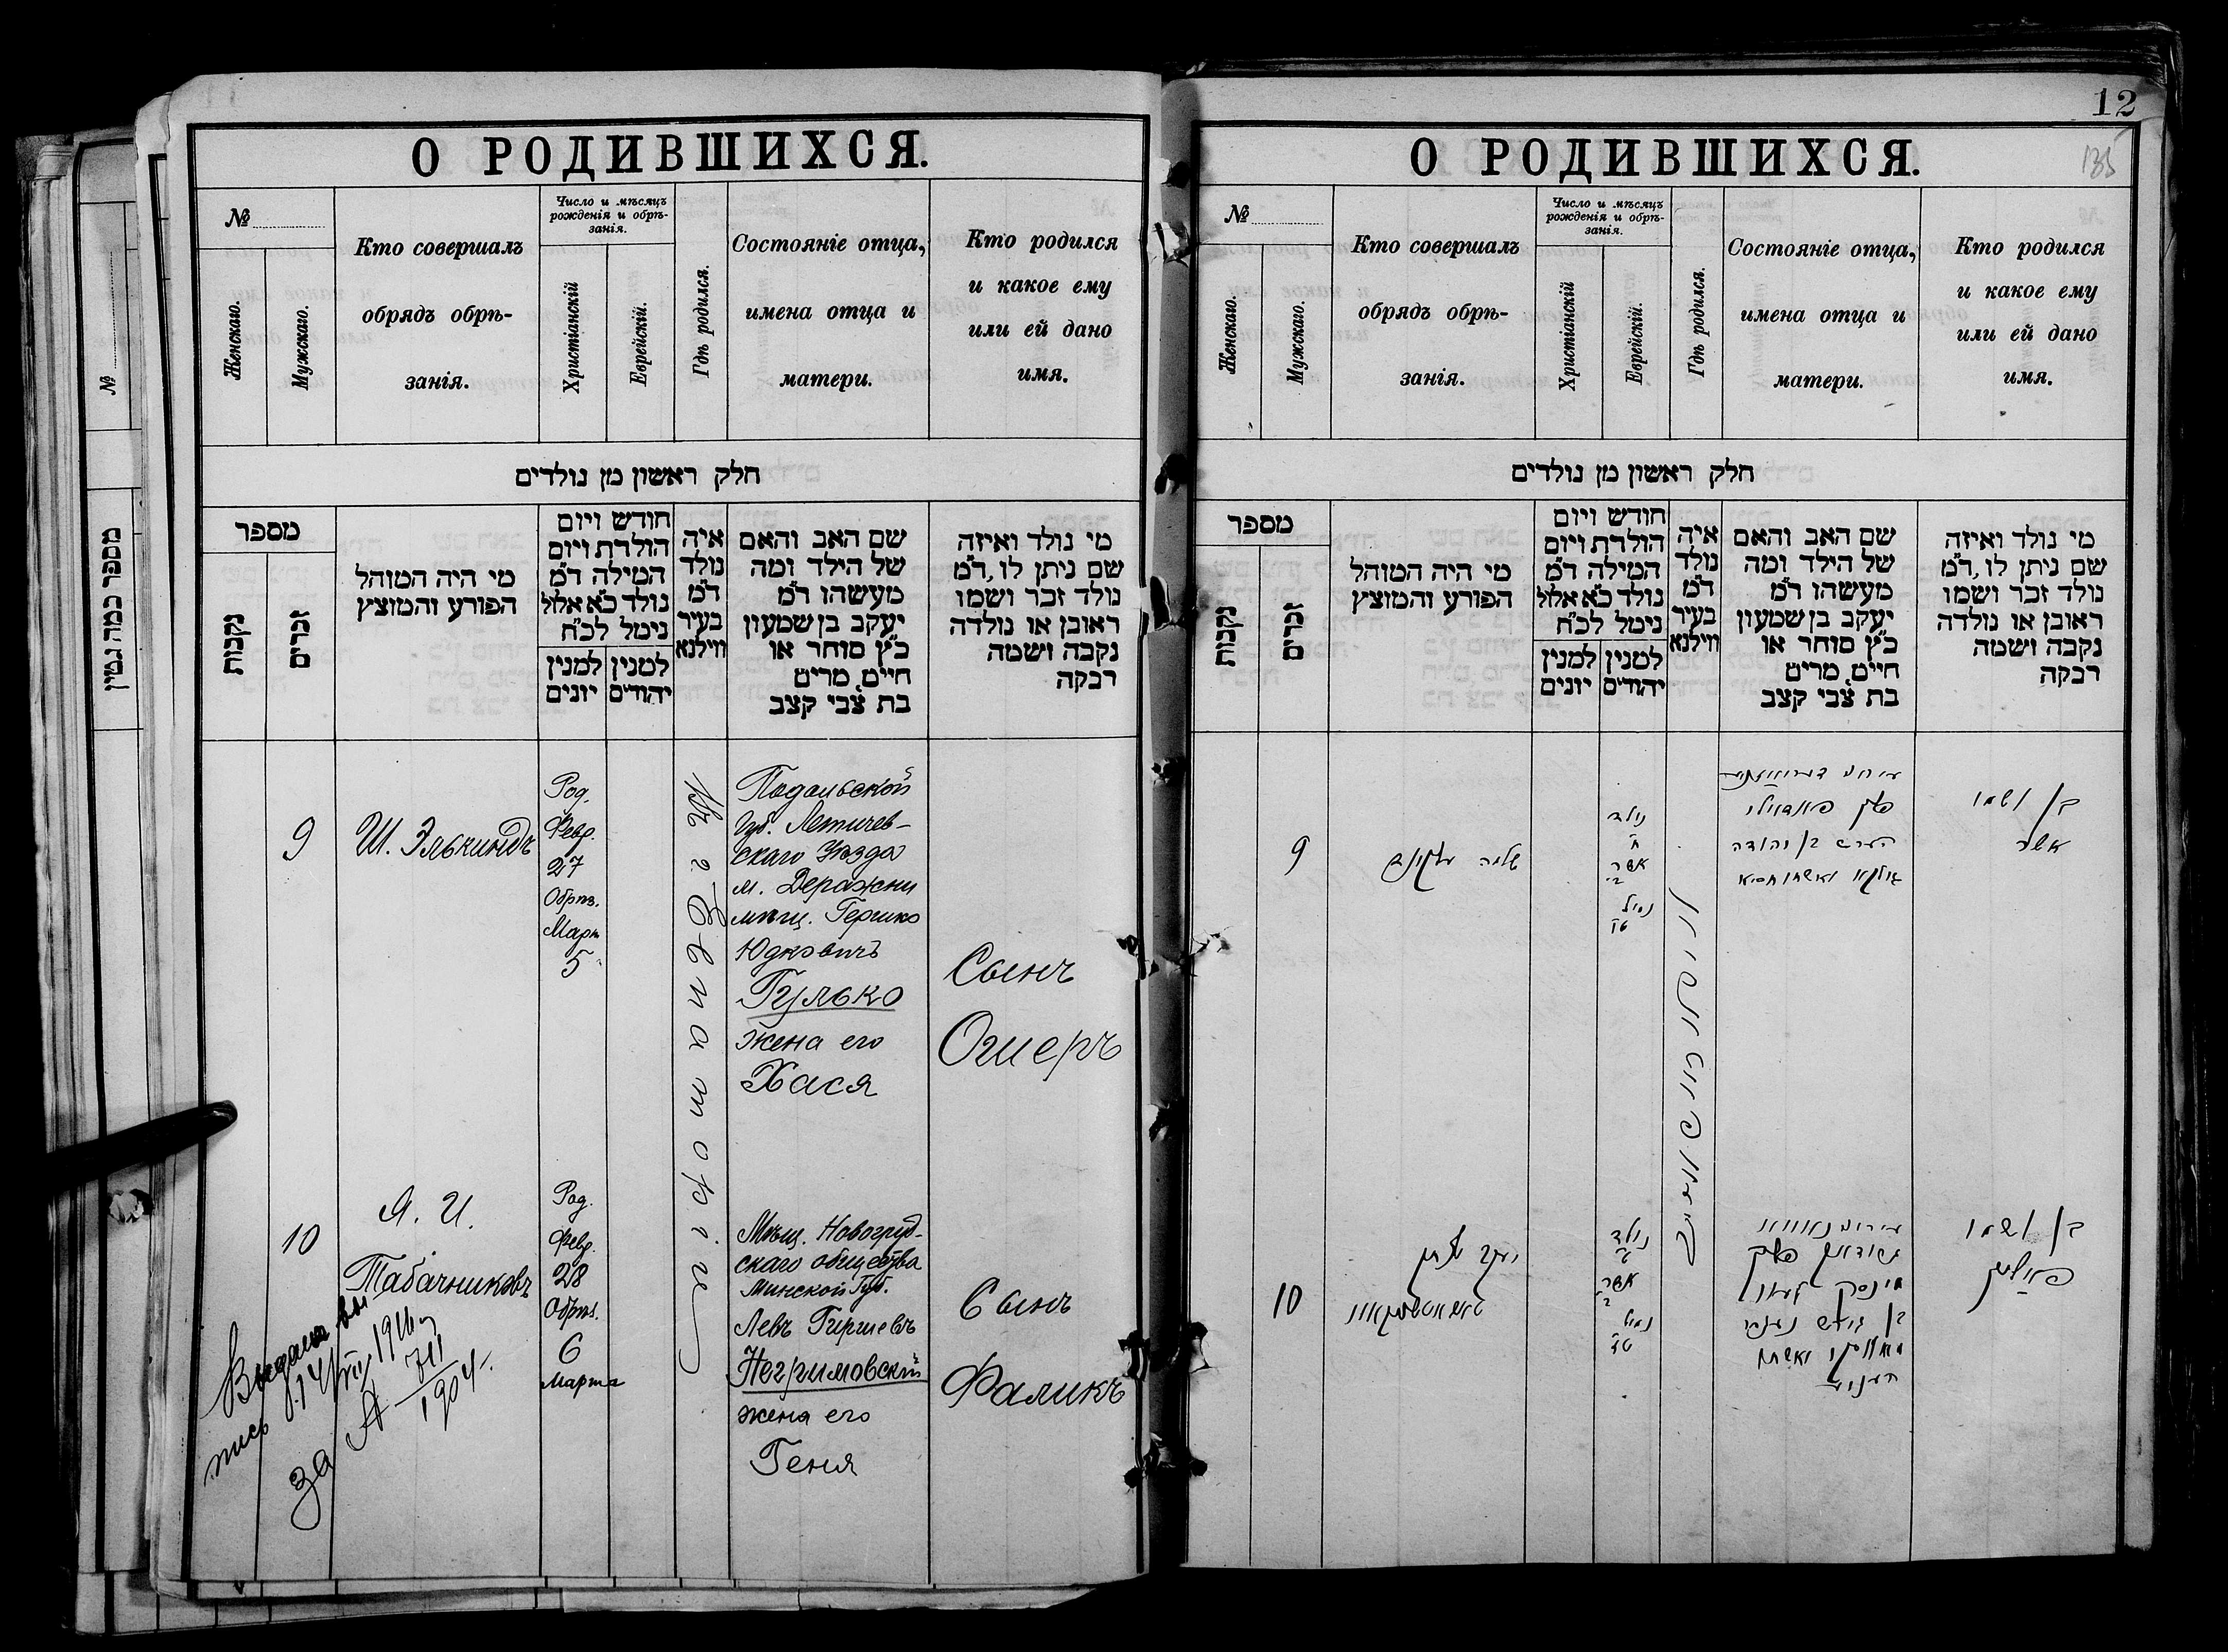 О РОДИВШИХСЯ.
№
Женскаго.
Мужскаго.
Кто совершалъ
обрядъ обрѣ-
занія.
Число и мѣсяцъ
рожденія и обрѣ-
занія.
Христіанскій
Еврейскій.
Гдѣ родился.
Состояніе отца,
имена отца и
матери.
Кто родился
и какое ему
или ей дано
имя.
חלק ראשון מן נולדים
מספר
נקבות
זכרים
מי היה המוהל
הפורע והמוצץ
חודש ויום
הולדת ויום
המילה ד״מ
נולד כ״א אלול
נימל לכ״ח
למנין יונים
למנין יהודים
איה
נולד
ד״מ
בעיר
ווילנא
שם האב והאם
של הילד ומה
מעשהו ד״מ
יעקב בן שמעון
כ״ץ סוחר או
חיים, מרים
בת צבי קצב
מי נולד ואיזה
שם ניתן לו, ד״מ
נולד זכר ושמו
ראובן או נולדה
נקבה ושמה
רבקה
9
Ш. Элькиндъ
Род.
Февр.
27
Обрѣз.
Март
5
Въ г. Евпаторіи
Подольской
Губ. Летичев-
скаго Уѣзда
м. Деражни
мѣщ. Гершко
Юдковичъ
Гулько
жена его
Хася
Сынъ
Ошеръ
10
Я. И.
Табачниковъ
Род.
Февр.
28
Обрѣз.
6
Марта
Мѣщ. Новогруд-
скаго общества
Минской Губ.
Левъ Гиршевъ
Негримовскій
жена его
Геня
Сынъ
Фаликъ
Выдана вы
пись
1916 г.
за №
1904.
№
מספר כמה גטין
12
135
О РОДИВШИХСЯ.
№
Женскаго.
Мужскаго.
Кто совершалъ
обрядъ обрѣ-
занія.
Число и мѣсяцъ
рожденія и обрѣ-
занія.
Христіанскій
Еврейскій.
Гдѣ родился.
Состояніе отца,
имена отца и
матери.
Кто родился
и какое ему
или ей дано
имя.
חלק ראשון מן נולדים
מספר
נקבות
זכרים
מי היה המוהל
הפורע והמוצץ
חודש ויום
הולדת ויום
המילה ד״מ
נולד כ״א אלול
נימל לכ״ח
למנין יונים
למנין יהודים
איה
נולד
ד״מ
בעיר
ווילנא
שם האב והאם
של הילד ומה
מעשהו ד״מ
יעקב בן שמעון
כ״ץ סוחר או
חיים, מרים
בת צבי קצב
מי נולד ואיזה
שם ניתן לו, ד״מ
נולד זכר ושמו
ראובן או נולדה
נקבה ושמה
רבקה
9
נולד
אדר
נמול
בן ושמו
אשר
10
נולד
אדר
נמול
בן ושמו